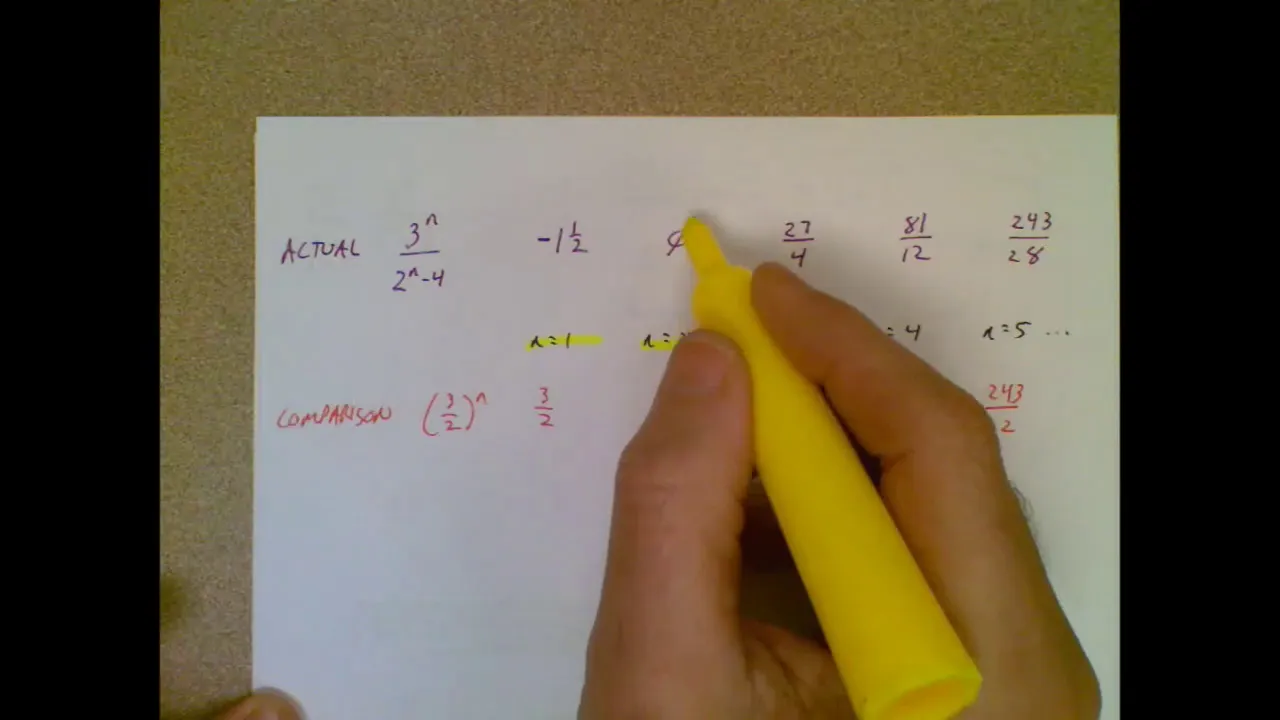 ACTUAL 3^n/(2^n-4) -1 1/2 ¢ 27/4 81/12 243/28
n=1 n= = 4 n=5 ...
COMPARISON (3/2)^n 3/2 243/2